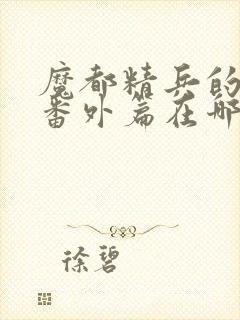 魔都精兵的
番外篇在哪
徐碧